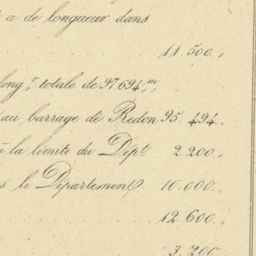 a de longueur dans
11 500.
long.r totale de 97.694m,
au barrage de Redon 95 494.
à la limite du Dépt 2 200.
s le Département 10.000.
12 600.
3 200